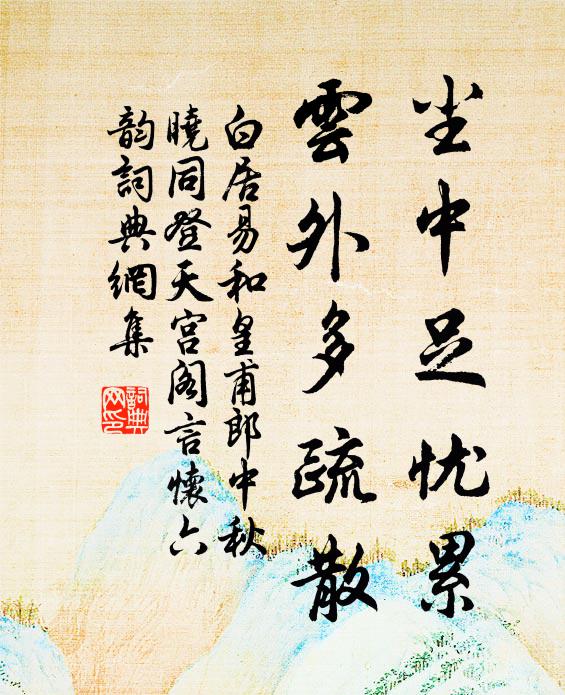 尘中足忧累
雲外多疏散
白居易和皇甫郎中秋
曉同登天宫阁言懷六
韵詞典網集
詞典
网印